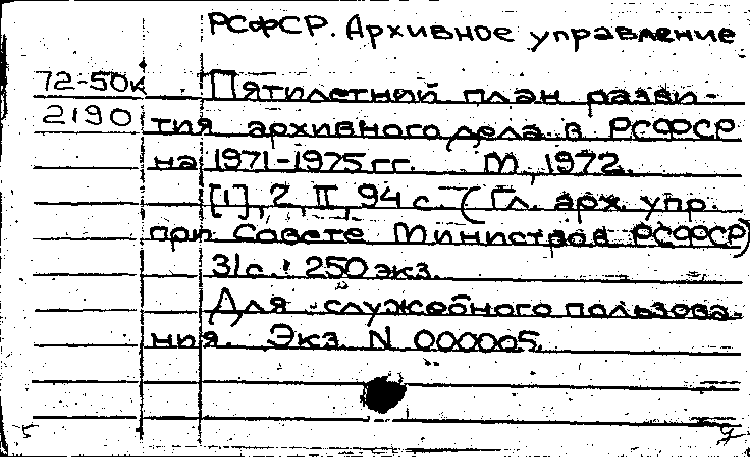 РСФСР. Архивное управление
72-50к Пятилетний план разви-
2190 тия архивного дела в РСФСР
на 1971-1975 гг. М., 1972.
[1], 2, II, 94 с. (Гл. арх. упр.
при Совете Министров РСФСР)
31с. 250 экз.
Для служебного пользова-
ния. Экз. N 000005.